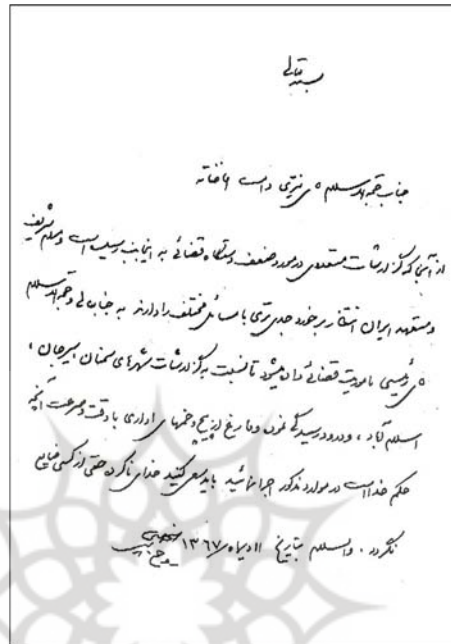 بسمه تعالی
جناب حجةالاسلام آقای نیّری دامت افاضاته
از آنجا که گزارشات متعددی در مورد ضعف دستگاه قضائی به اینجانب رسیده است و مسلم شریف
و متعهد ایران انتظار برخورد جدی‌تری با مسائل مختلف را دارند به جنابعالی و حجةالاسلام
آقای رئیسی ماموریت قضائی داده میشود تا نسبت به گزارشات شهرهای سمنان، سیرجان،
اسلام آباد، و درود رسیدگی نموده و فارغ از پیچ و خمهای اداری با دقت و سرعت آنچه
حکم خدا است در موارد مذکور اجرا نمائید باید سعی کنید خدای ناکرده حقی از کسی ضایع
نگردد. والسلام بتاریخ ۱۱ دیماه ۱۳۶۷
روح الله الموسوی الخمینی